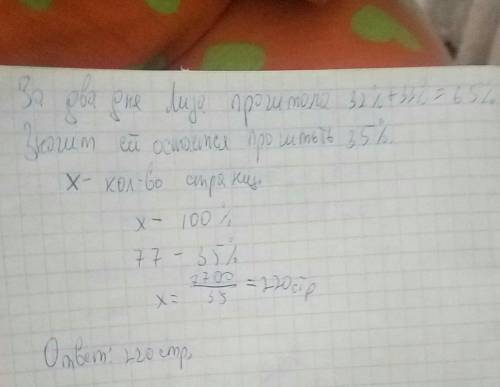 За два дне Лиза прочитала 32%+33%=65%
Значит ей остаётся прочитать 35%.
х- кол-во страниц.
х- 100%
77 - 35%
х= 7700/35 =220стр
Ответ: 220стр.